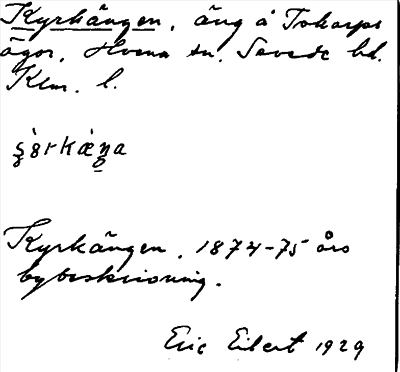 Kyrkängen, äng å Tokarps
ägor, Hvena sn. Sevede hd.
Klm. l.
Kyrkängen, 1874-75 års
bybeskrivning.
Eric Eilert 1929